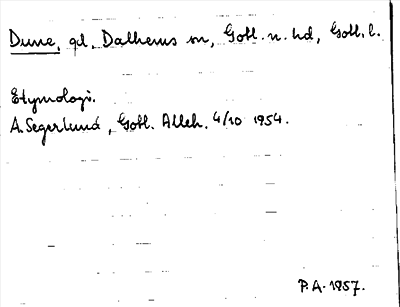 Dune, gd, Dalhems sn, Gotl. n. hd, Gotl. l.
Etymologi.
A. Segerlund, Gotl. Alleh. 4/10 1954.
P.A. 1957.